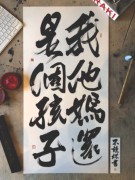 我他媽還
是個孩子